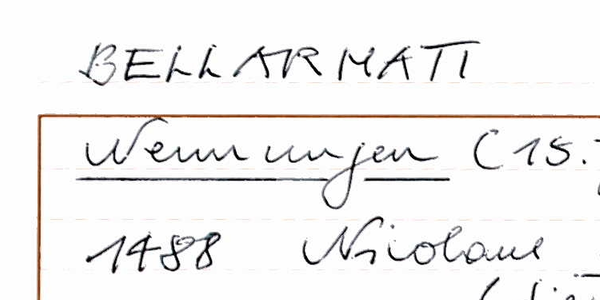 BELLARMATI
Nennungen (15.
1488 Nicolaus